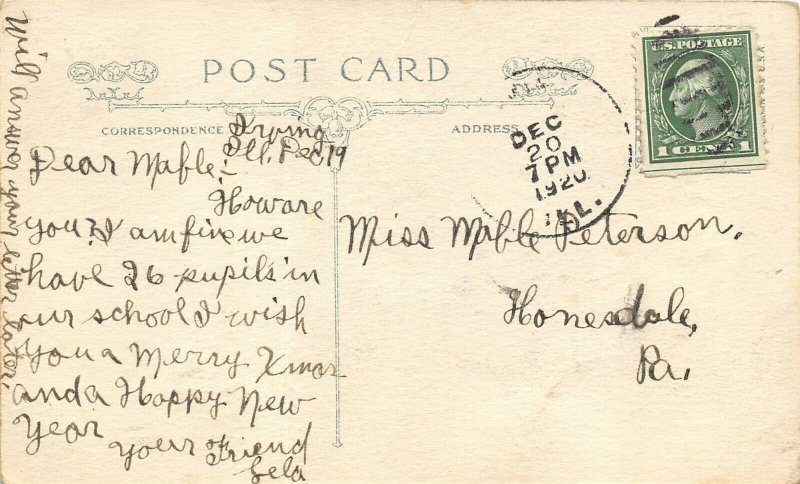 POST CARD
CORRESPONDENCE
ADDRESS
U.S. POSTAGE
1 CENT 1
DEC
20
7 PM
1920
ILL.
Irving
Ill. Dec 19
Dear Mable:-
How are
you? I am fine we
have 26 pupils in
our school I wish
you a Merry Xmas
and a Happy New
Year
your Friend
Lela
will answer your letter later.
Miss Mable Peterson,
Honesdale,
Pa.